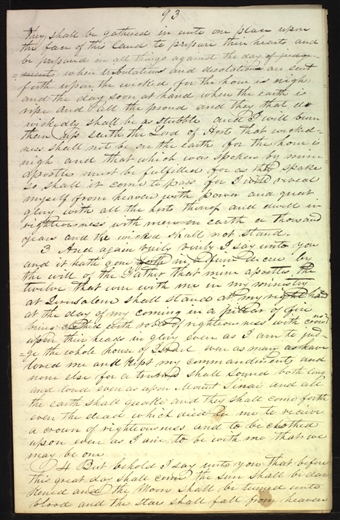 93
they shall be gathered in unto one place upon
the face of this land to prepare their hearts and
be prepared in all things against the day of
when tribulations and desolations are sent
forth upon the wicked for the hour is nigh
and the day soon at hand when the earth is
ripe and all the proud and they that do
wickedly shall be as stubble and I will burn
them up saith the Lord of Host that wicked-
ness shall not be on the earth for the hour is
nigh and that which was spoken by mine
apostles must be fulfilled for as they spoke
so shall it come to pass for I will reveal
myself from heaven with power and great
glory with all the hosts thereof and dwell in
righteousness with men on earth a thousand
years and the wicked shall not stand
3 And again verily verily I say unto you
and it hath gone forth in a firm decree by
the will of the Father that mine apostles the
twelve that were with me in my ministry
at Jerusalem shall stand at my right hand
at the day of my coming in a pillar of fire
being with robes of righteousness with crowns
upon their heads in glory even as I am to jud-
ge the whole house of Israel even as many as have
loved me and kept my commandments and
none else for a trump shall sound both long
and loud even as upon Mount Sinai and all
the earth shall quake and they shall come forth
even the dead which died in me to receive
a crown of righteousness and to be clothed
upon even as I am to be with me that we
may be one
4 But behold I say unto you that before
this great day shall come the sun shall be dar-
kened and the moon shall be turned into
blood and the stars shall fall from heaven